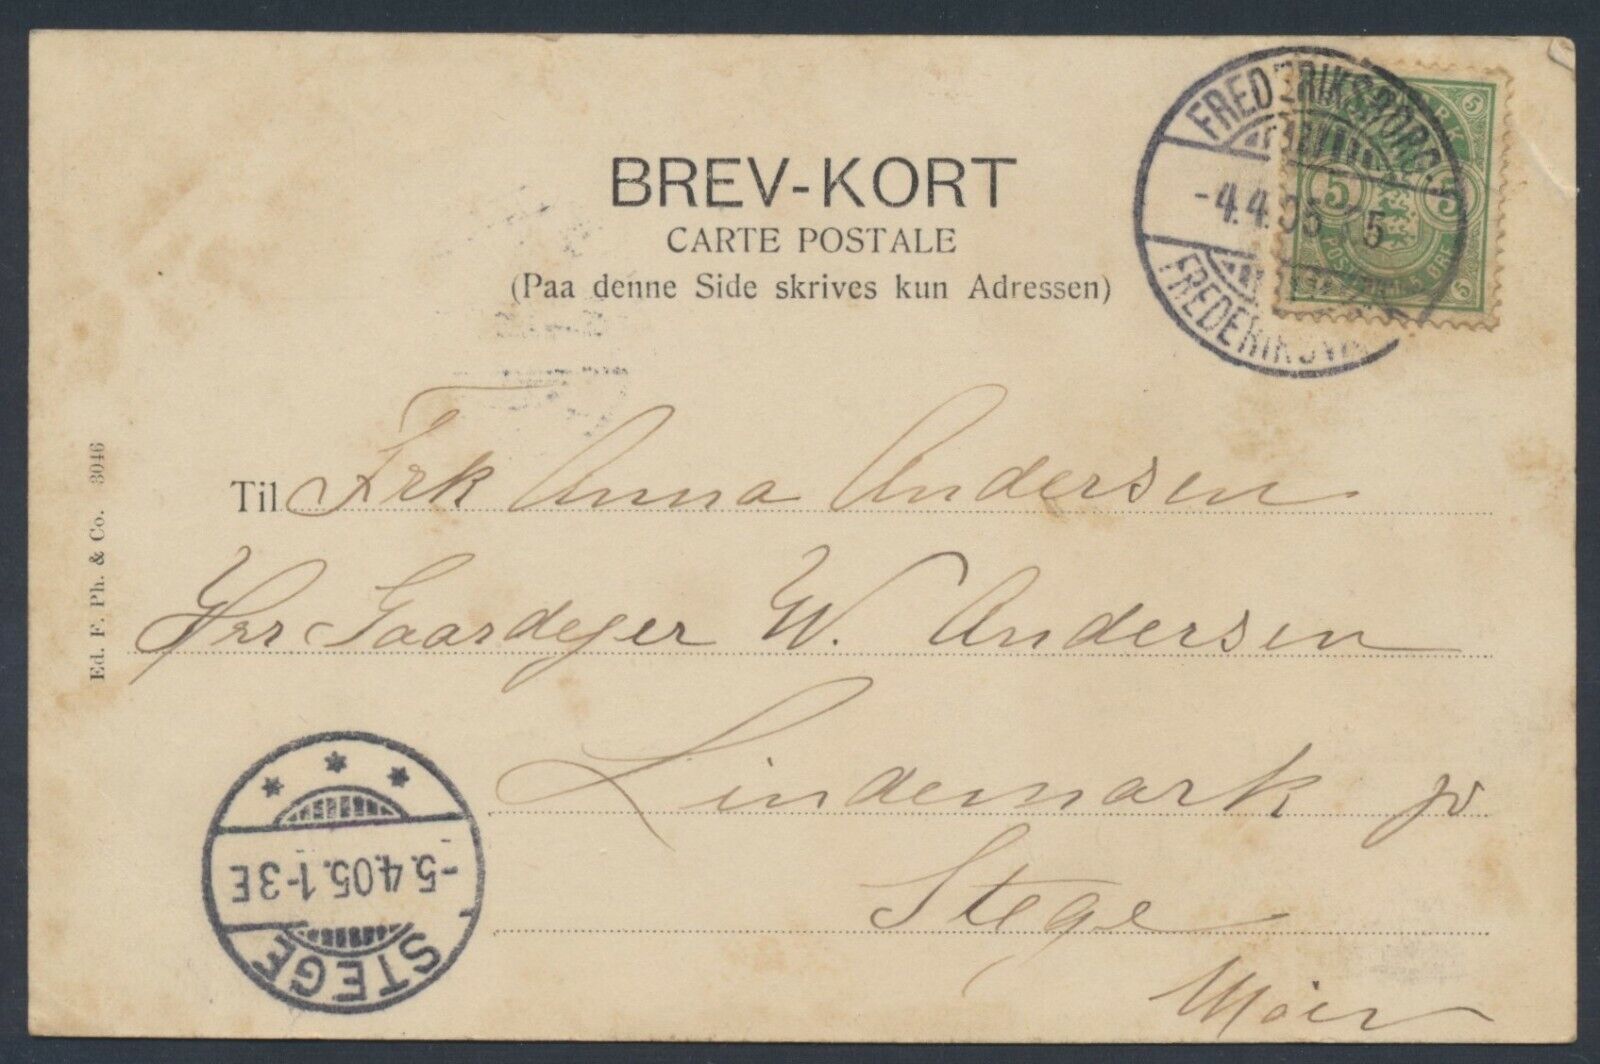 BREV-KORT
CARTE POSTALE
(Paa denne Side skrives kun Adressen)
FREDERIKSBORG
-4.4.05 5
FREDERIKSVÆ
5 5
5 5
POST
5 ØRE
Til Frk Anna Andersen
Hrr Gaardejer W. Andersen
Lindemark pr
Stege
Møen
Ed. F. Ph. & Co. 3046
-5.4.05.1-3E
STEGE